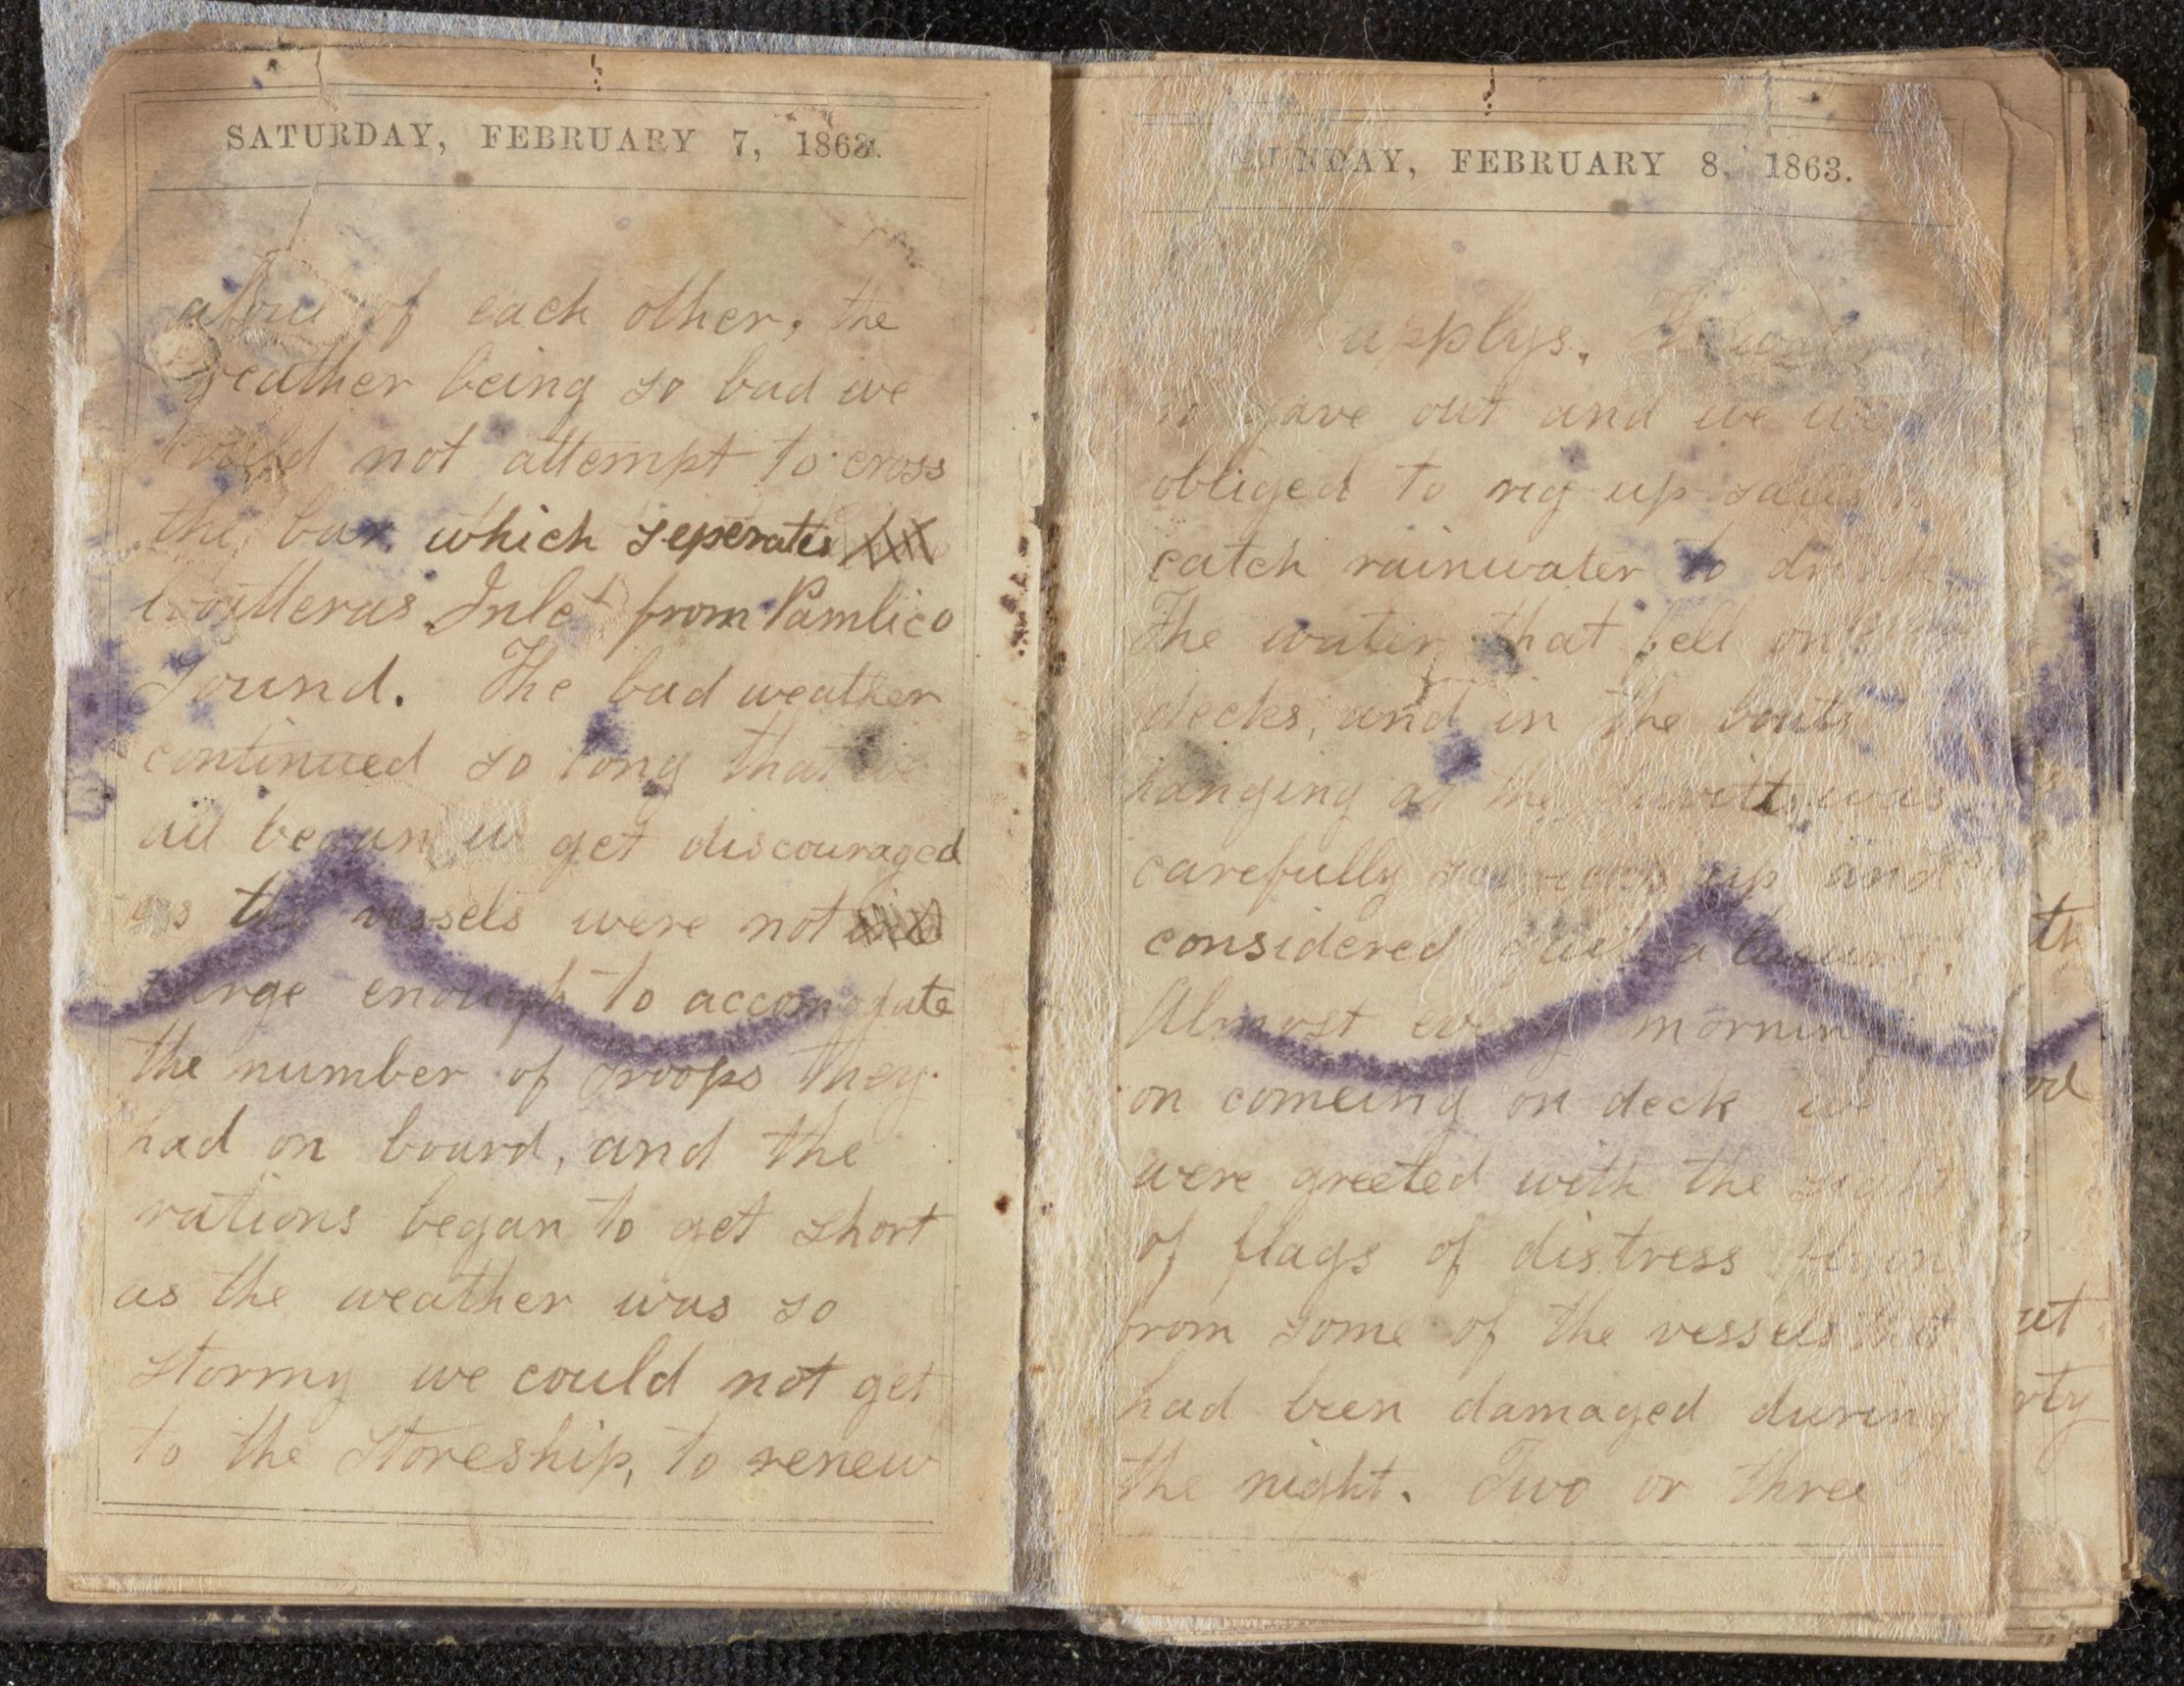 SATURDAY, FEBRUARY 7, 1863.
afoul of each other, the
weather being so bad we
could not attempt to cross
the bar which seperates
Hatterus Inlet from Pamlico
Sound. The bad weather
continued so long that we
all began to get discouraged
as the vessels were not
large enough to accomodate
the number of troops they
had on board, and the
rations began to get short
as the weather was so
stormy we could not get
to the storeship, to renew
SUNDAY, FEBRUARY 8, 1863.
supplys.
gave out and we
obliged to rig up sails
catch rainwater to drink
The water that fell on
decks, and in the boats
hanging at the davitts, was
carefully up and
considered quite a luxury.
Almost every morning
on comeing on deck we
were greeted with the sight
of flags of distress
from some of the vessels that
had been damaged during
the night. Two or three